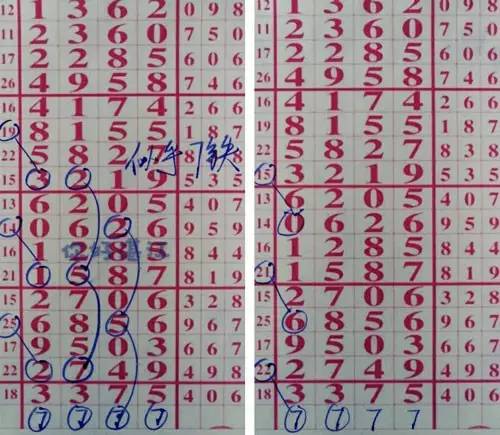 12 1 3 6 2 0 9 8
11 2 3 6 0 7 5 0
17 2 2 8 5 6 0 6
26 4 9 5 8 7 4 6
16 4 1 7 4 2 6 6
19 8 1 5 5 1 8 7
22 5 8 2 似乎7铁 8 8
15 3 2 1 9 5 3 5
13 6 2 0 5 4 0 7
14 0 6 2 6 9 5 9
1 2 8 5 8 4 4
21 1 5 8 7 8 1 9
15 2 7 0 6 3 2 8
25 6 8 5 6 9 6 7
17 9 5 0 3 6 6 7
22 2 7 4 9 4 9 8
18 3 3 7 5 4 0 6
7 7 7 7
12 1 3 6 2 0 9 8
11 2 3 6 0 7 5 0
17 2 2 8 5 6 0 6
26 4 9 5 8 7 4 6
16 4 1 7 4 2 6 6
19 8 1 5 5 1 8 7
22 5 8 2 7 8 3 8
15 3 2 1 9 5 3 5
13 6 2 0 5 4 0 7
14 0 6 2 6 9 5 9
16 1 2 8 5 8 4 4
21 1 5 8 7 8 1 9
15 2 7 0 6 3 2 8
25 6 8 5 6 9 6 7
17 9 5 0 3 6 6 7
22 2 7 4 9 4 9 8
18 3 3 7 5 4 0 6
7 7 7 7